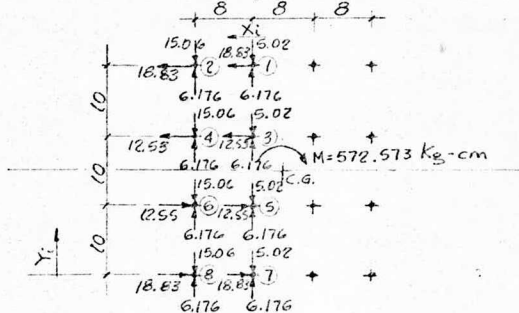 8 8 8
Xi
15.06 5.02
18.83 2 18.83 1
6.176 6.176
10
15.06 5.02
12.53 4 12.55 3
6.176 6.176 M=572.573 Kg-cm
10
C.G.
15.06 5.02
12.55 6 12.55 5
6.176 6.176
10
Yi
15.06 5.02
18.83 8 18.83 7
6.176 6.176